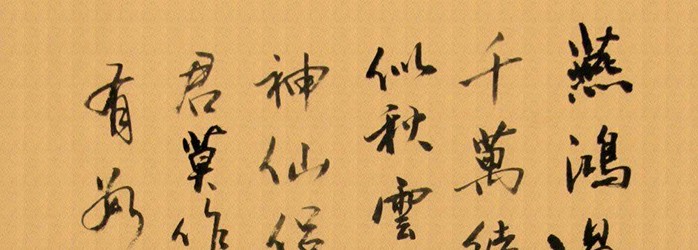 燕鴻過
千萬緒
似秋雲
神仙侶
君莫作
有数